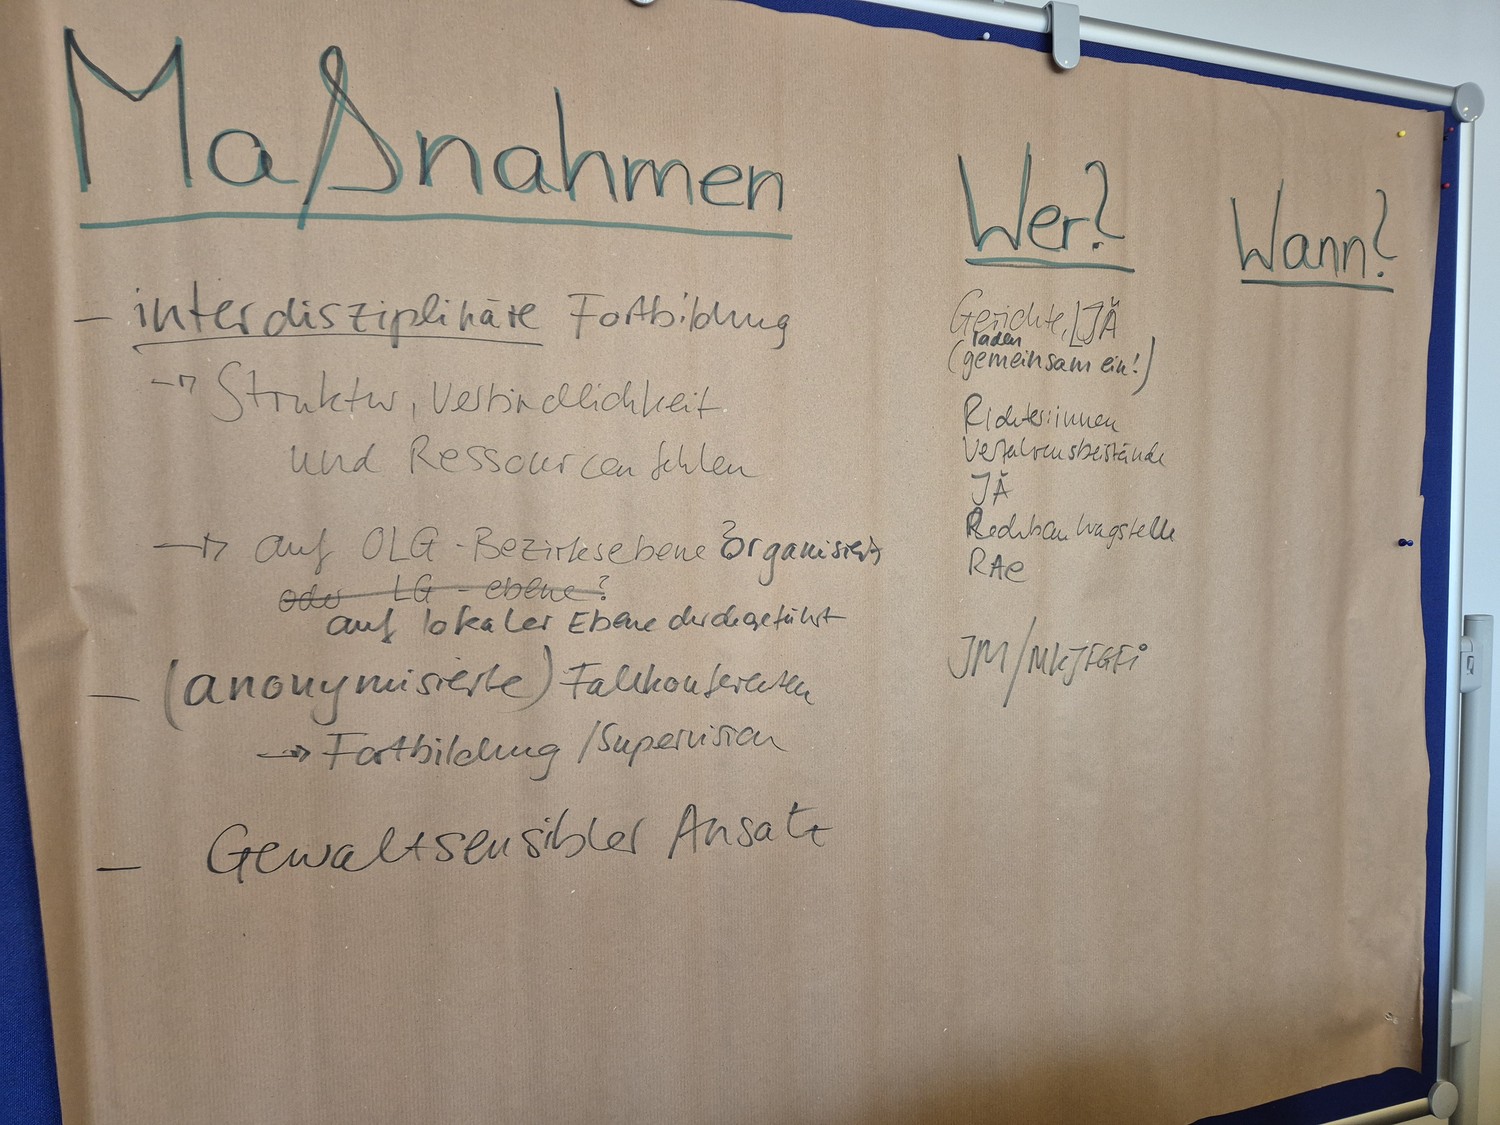 Maßnahmen
Wer?
Wann?
– interdisziplinäre Fortbildung
→ Struktur, Verbindlichkeit
und Ressourcen fehlen
→ auf OLG-Bezirksebene organisiert
oder LG-ebene?
auf lokaler Ebene durchgeführt
– (anonymisierte) Fallkonferenzen
→ Fortbildung / Supervision
– Gewaltsensibler Ansatz
Gerichte, JÄ
laden
(gemeinsam ein!)
Richter:innen
Verfahrensbeistände
JÄ
RAe
JM/MKJFGFI